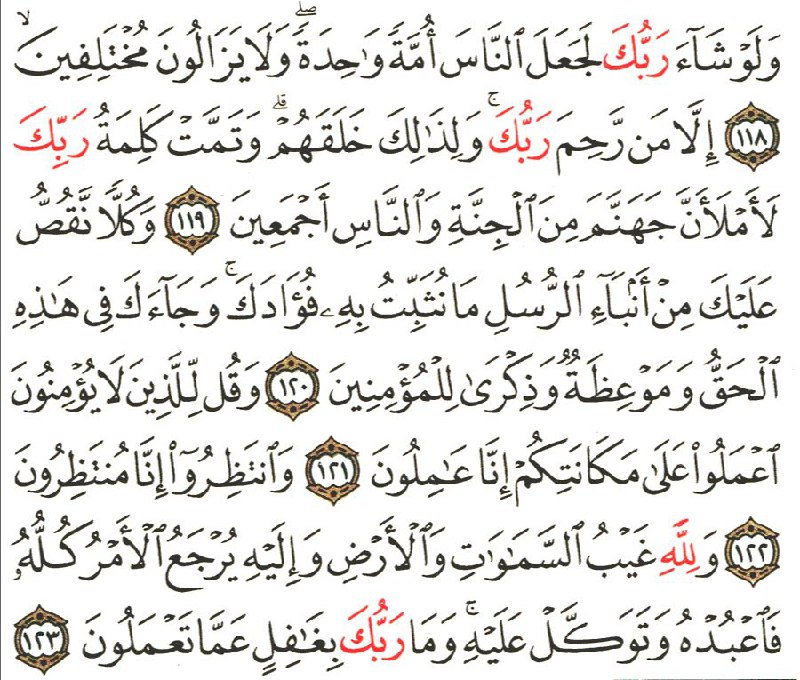 وَلَوْ شَآءَ رَبُّكَ لَجَعَلَ ٱلنَّاسَ أُمَّةً وَٰحِدَةً ۖ وَلَا يَزَالُونَ مُخْتَلِفِينَ ۙ
﴿١١٨﴾ إِلَّا مَن رَّحِمَ رَبُّكَ ۚ وَلِذَٰلِكَ خَلَقَهُمْ ۗ وَتَمَّتْ كَلِمَةُ رَبِّكَ
لَأَمْلَأَنَّ جَهَنَّمَ مِنَ ٱلْجِنَّةِ وَٱلنَّاسِ أَجْمَعِينَ ﴿١١٩﴾ وَكُلًّا نَّقُصُّ
عَلَيْكَ مِنْ أَنۢبَآءِ ٱلرُّسُلِ مَا نُثَبِّتُ بِهِۦ فُؤَادَكَ ۚ وَجَآءَكَ فِى هَٰذِهِ
ٱلْحَقُّ وَمَوْعِظَةٌ وَذِكْرَىٰ لِلْمُؤْمِنِينَ ﴿١٢٠﴾ وَقُل لِّلَّذِينَ لَا يُؤْمِنُونَ
ٱعْمَلُوا۟ عَلَىٰ مَكَانَتِكُمْ إِنَّا عَٰمِلُونَ ﴿١٢١﴾ وَٱنتَظِرُوٓا۟ إِنَّا مُنتَظِرُونَ
﴿١٢٢﴾ وَلِلَّهِ غَيْبُ ٱلسَّمَٰوَٰتِ وَٱلْأَرْضِ وَإِلَيْهِ يُرْجَعُ ٱلْأَمْرُ كُلُّهُۥ
فَٱعْبُدْهُ وَتَوَكَّلْ عَلَيْهِ ۚ وَمَا رَبُّكَ بِغَٰفِلٍ عَمَّا تَعْمَلُونَ ﴿١٢٣﴾